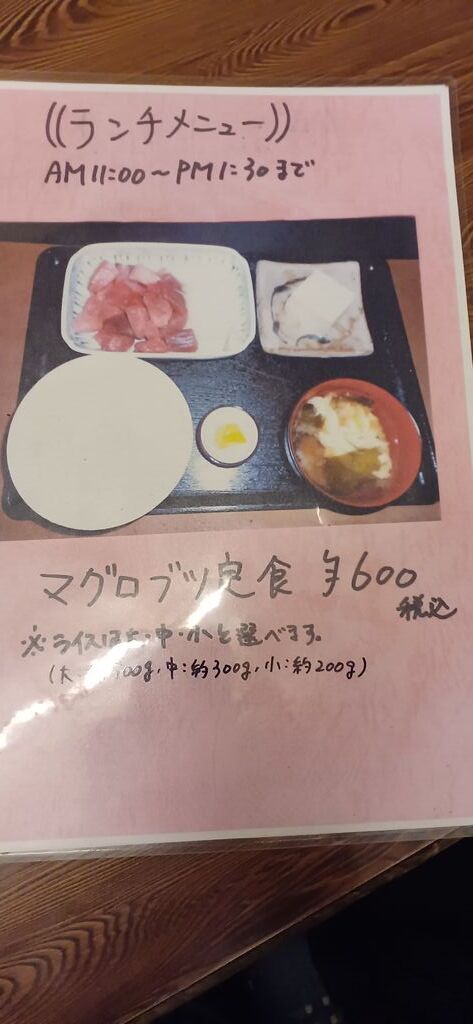 ((ランチメニュー))
AM11:00～PM1:30まで
マグロブツ定食 ¥600
税込
※ライスは大・中・小と選べます。
(大 00g,中:約300g,小:約200g)